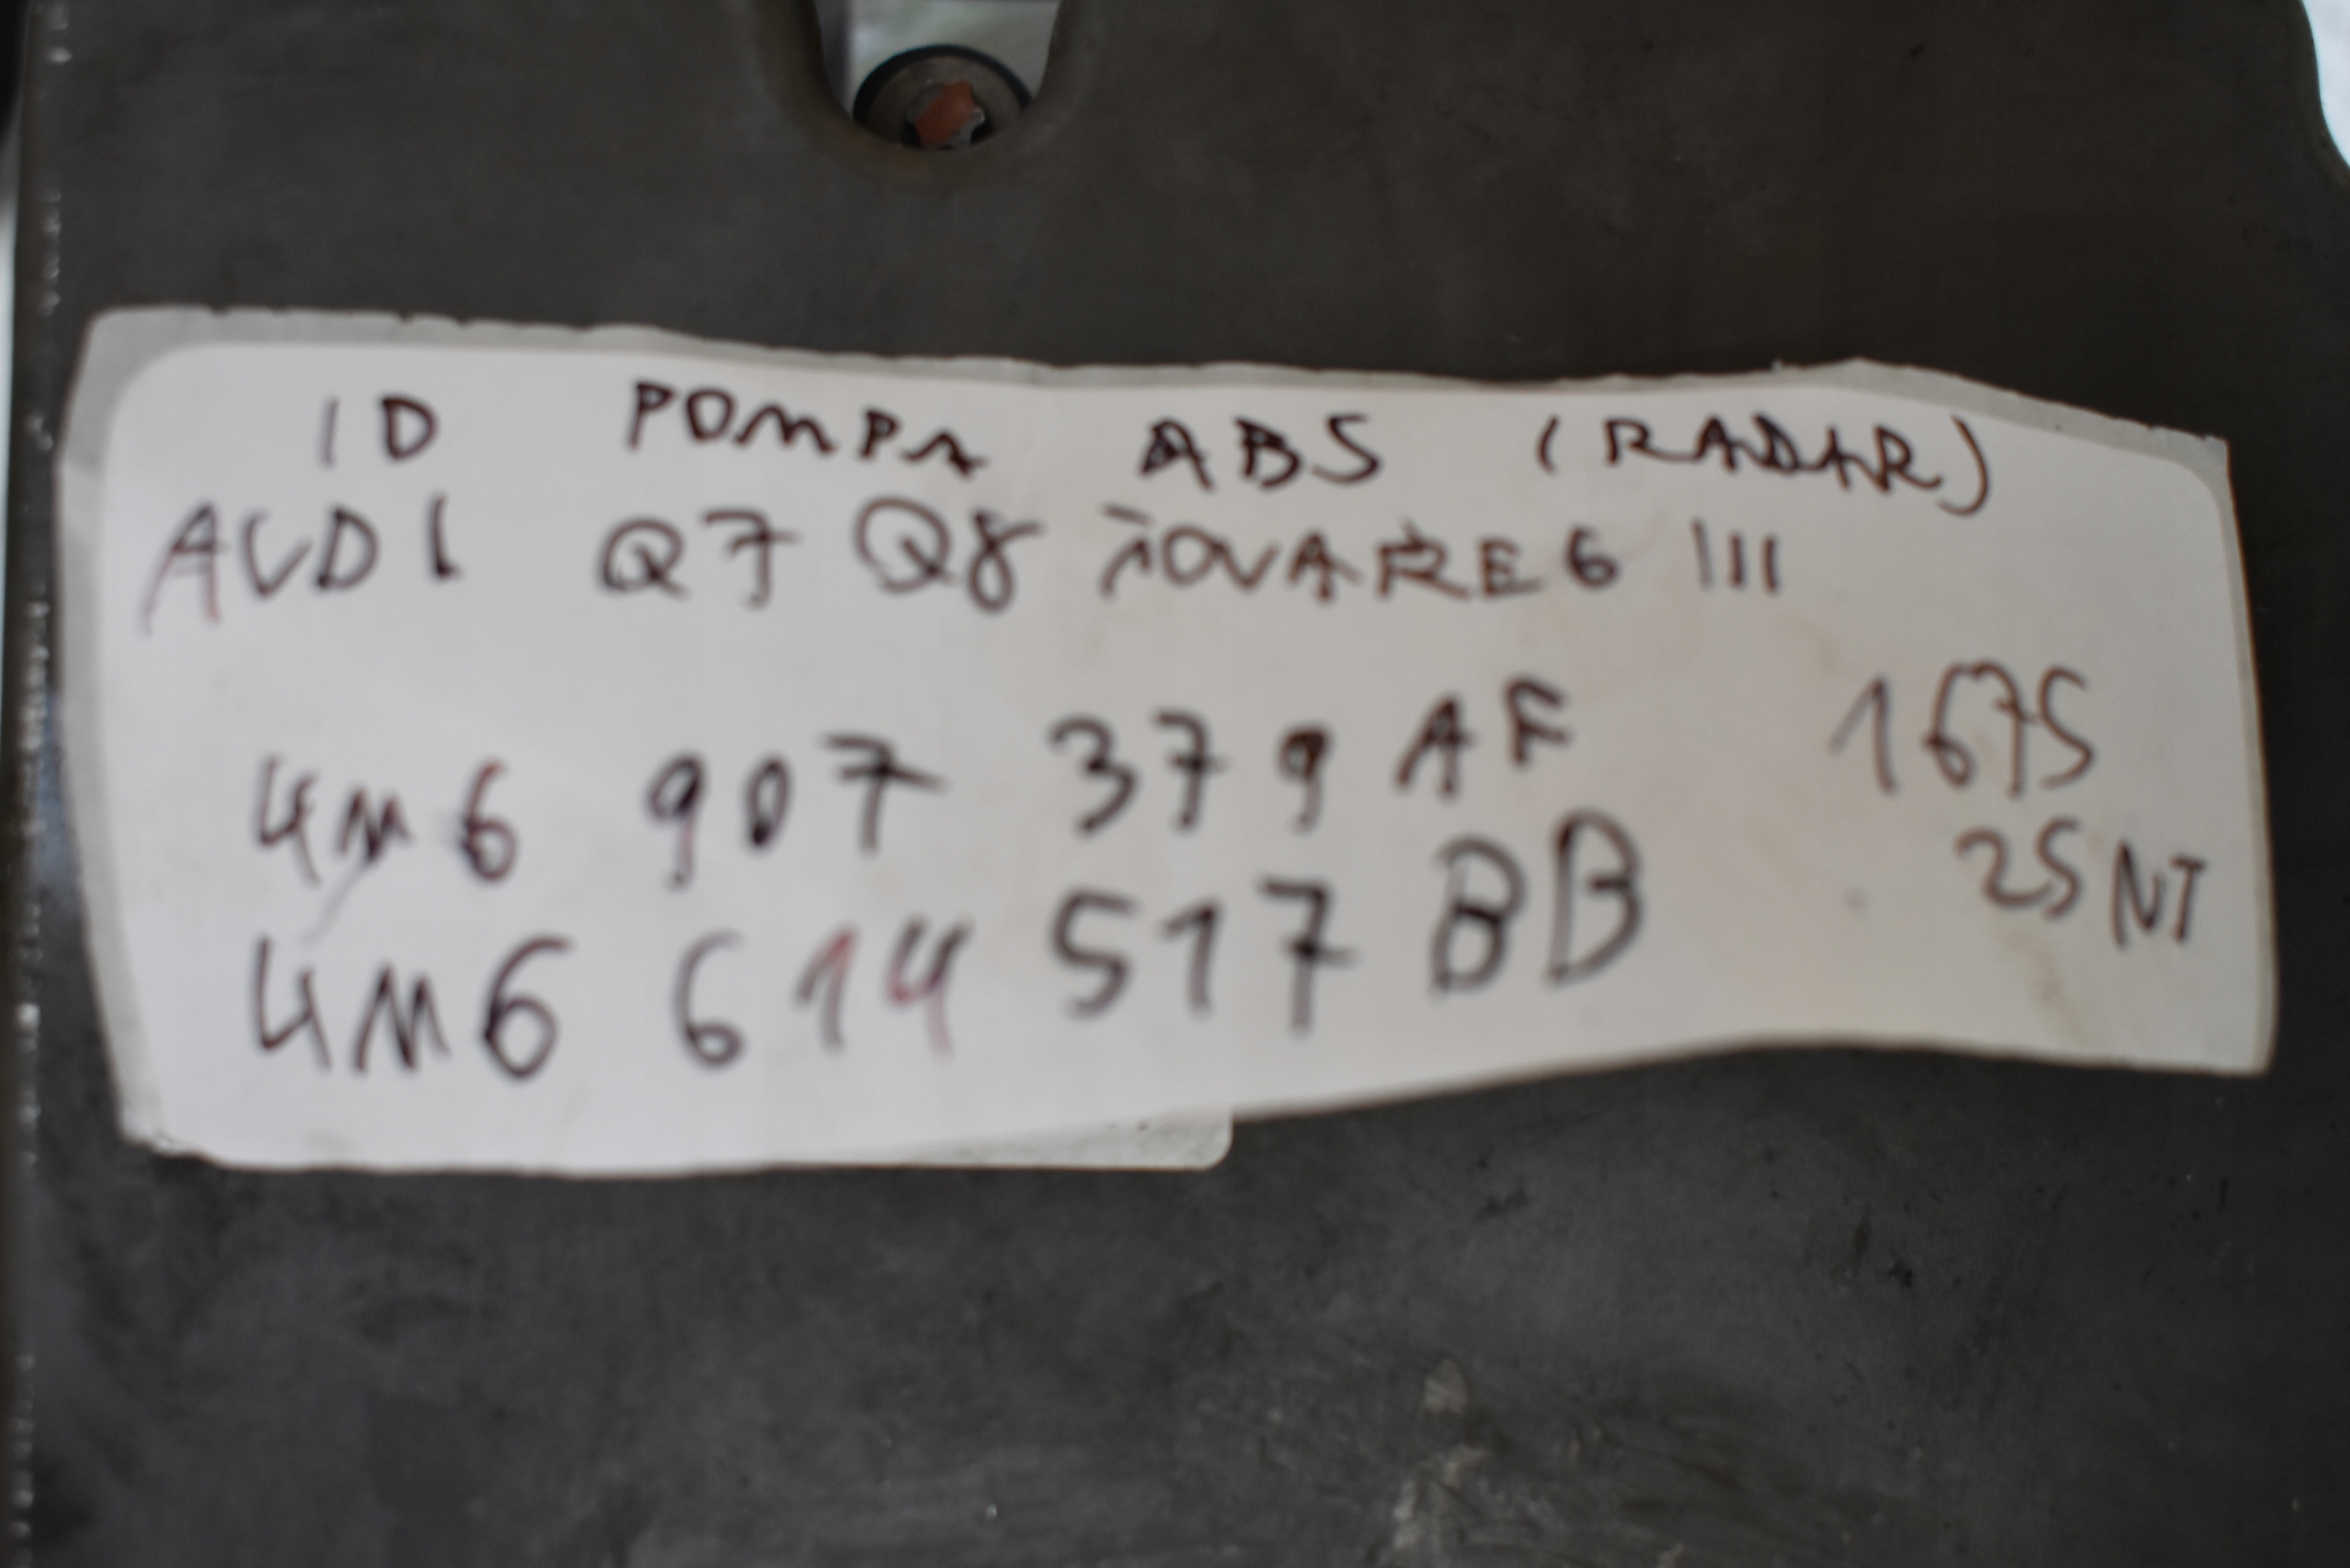 ID POMPA ABS (RADAR)
AUDI Q7 Q8 TOUAREG III
4M6 907 379 AF 1675
4M6 614 517 BB 25NT